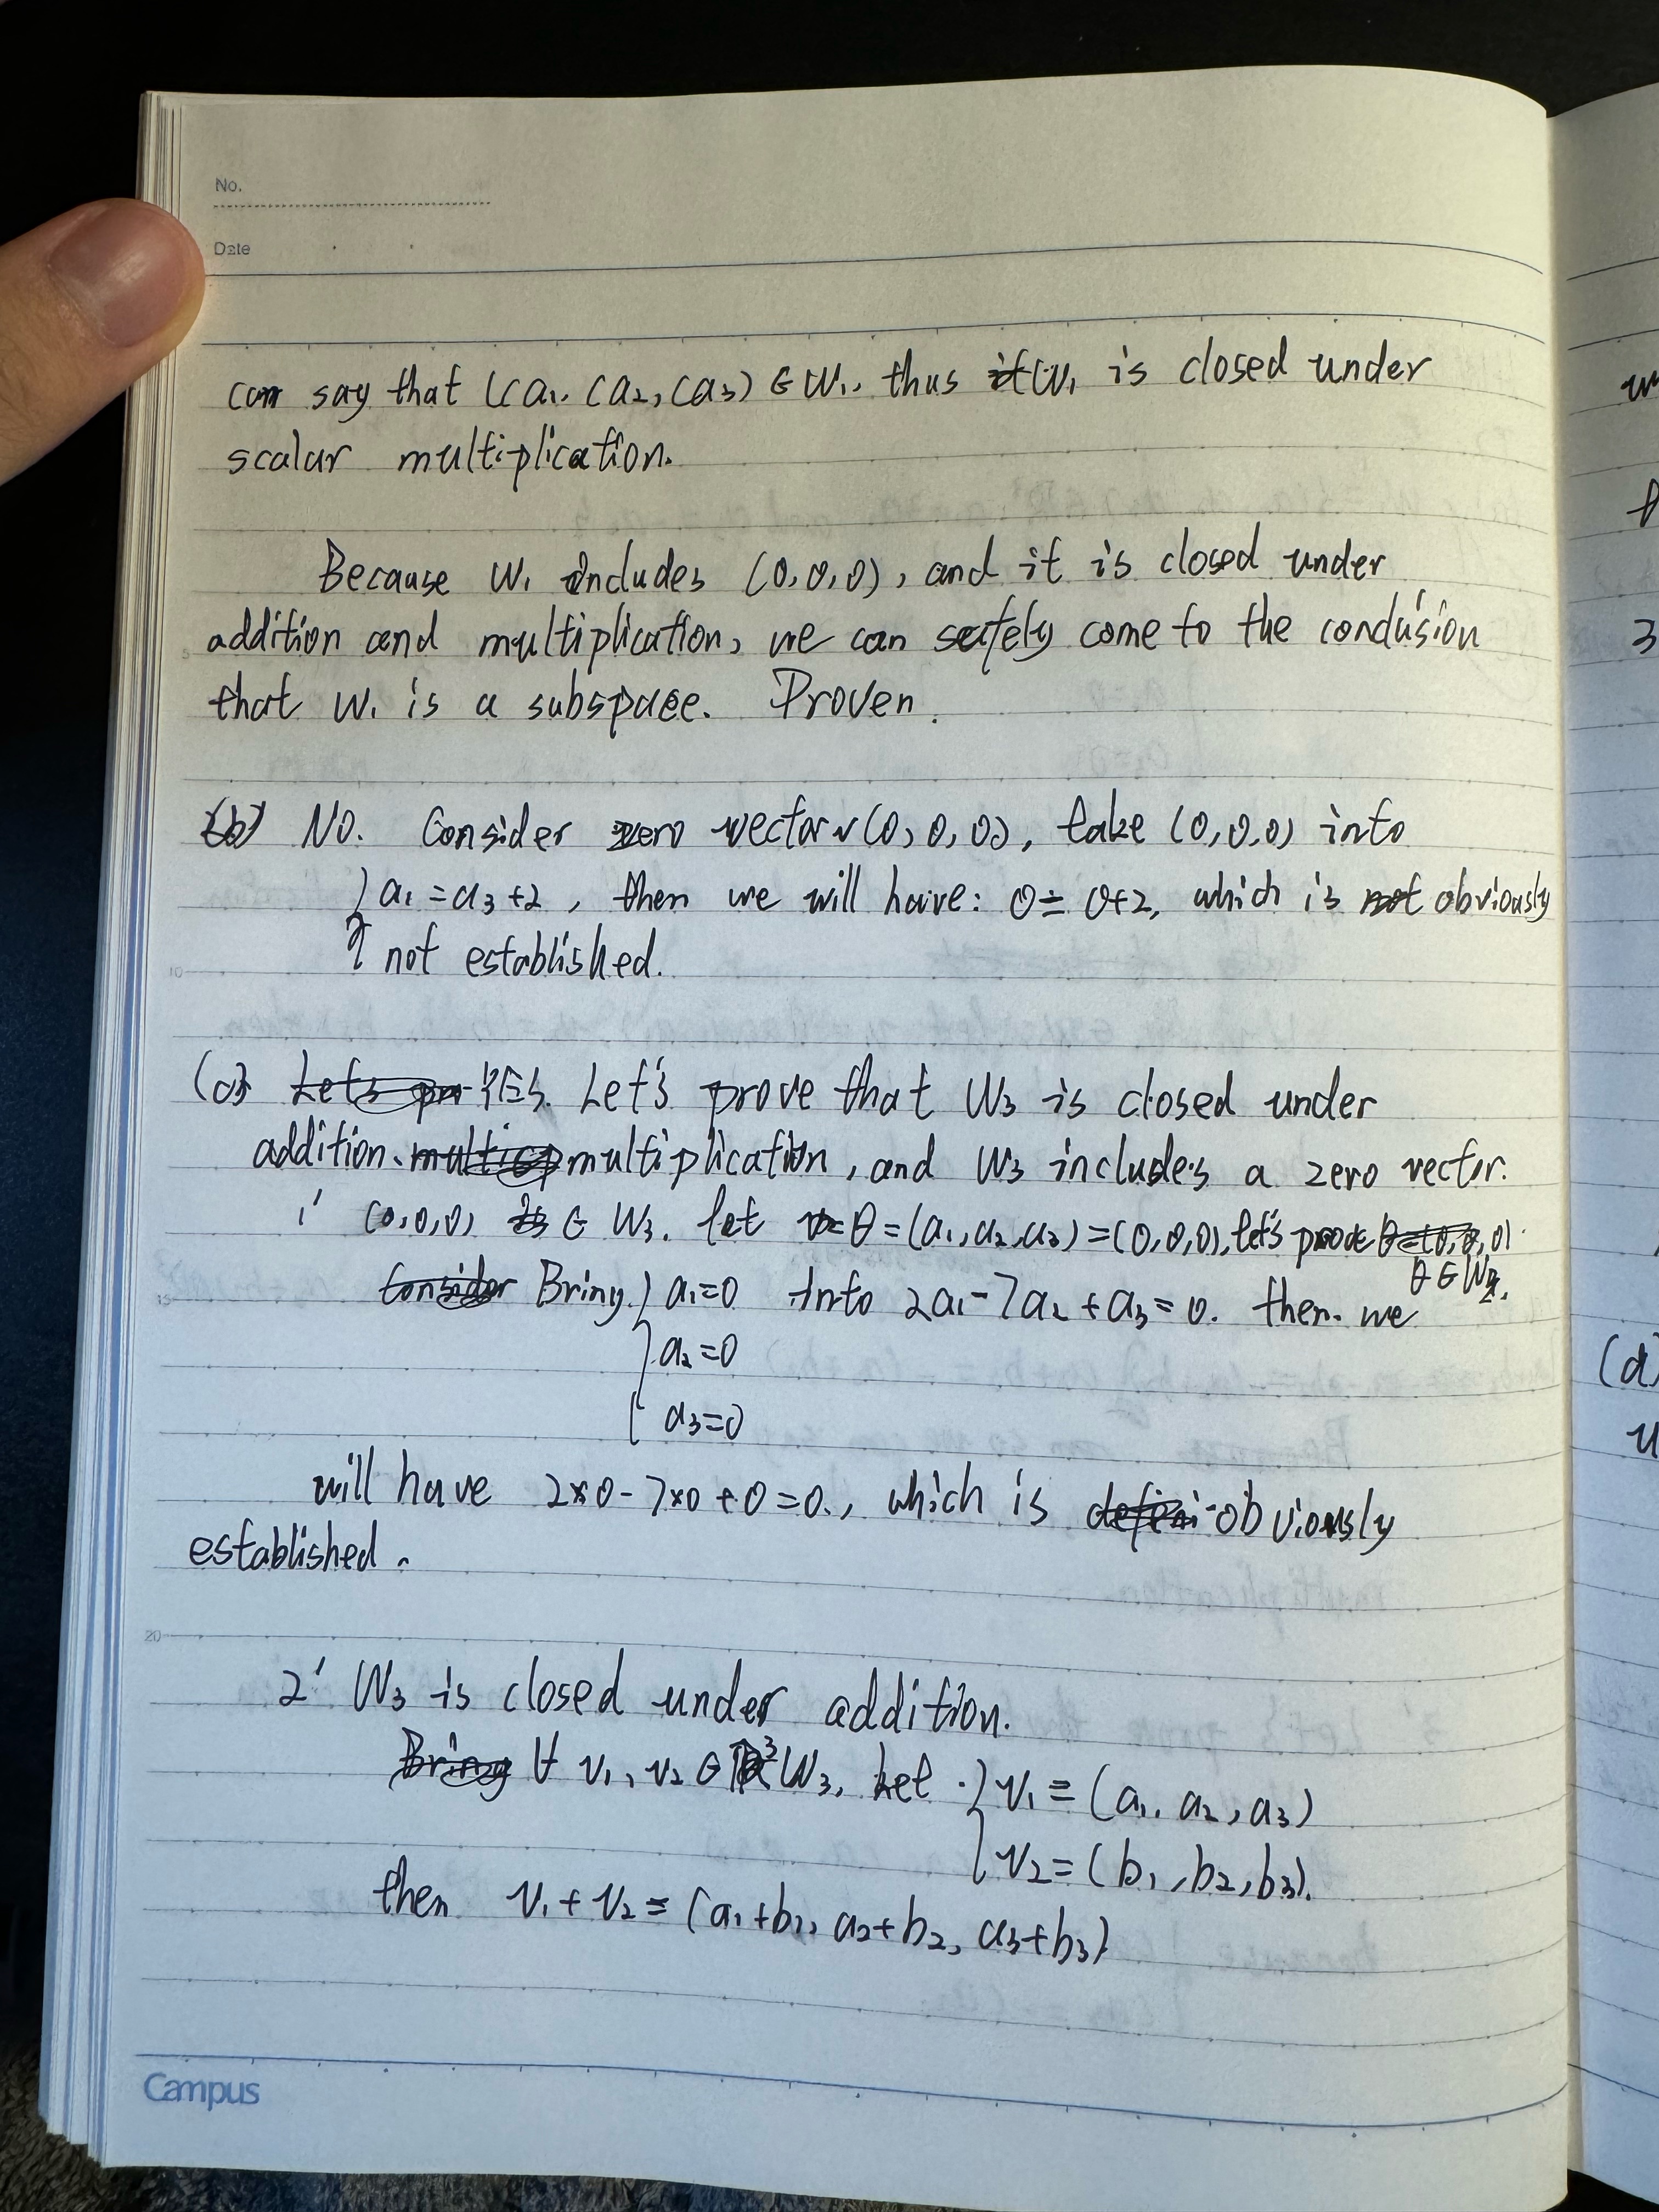 No.
Date
can say that (ca₁, ca₂, ca₃) ∈ W₁, thus W₁ is closed under
scalar multiplication.
Because W₁ includes (0, 0, 0), and it is closed under
5
addition and multiplication, we can safely come to the conclusion
that W₁ is a subspace. Proven.
(b) No. Consider zero vector (0, 0, 0), take (0, 0, 0) into
{ a₁ = a₃+2, then we will have: 0 = 0+2, which is obviously
10
not established.
(c) YES. Let's prove that W₃ is closed under
addition, multiplication, and W₃ includes a zero vector.
1' (0,0,0) ∈ W₃. let θ = (a₁, a₂, a₃) = (0, 0, 0), let's prove
θ ∈ W₃.
15
Bring { a₁=0 into 2a₁-7a₂+a₃=0. then we
a₂=0
a₃=0
will have 2×0-7×0+0=0, which is obviously
established.
20
2' W₃ is closed under addition.
∀ v₁, v₂ ∈ W₃, Let { v₁ = (a₁, a₂, a₃)
v₂ = (b₁, b₂, b₃).
then v₁+v₂ = (a₁+b₁, a₂+b₂, a₃+b₃)
Campus
3
(d)